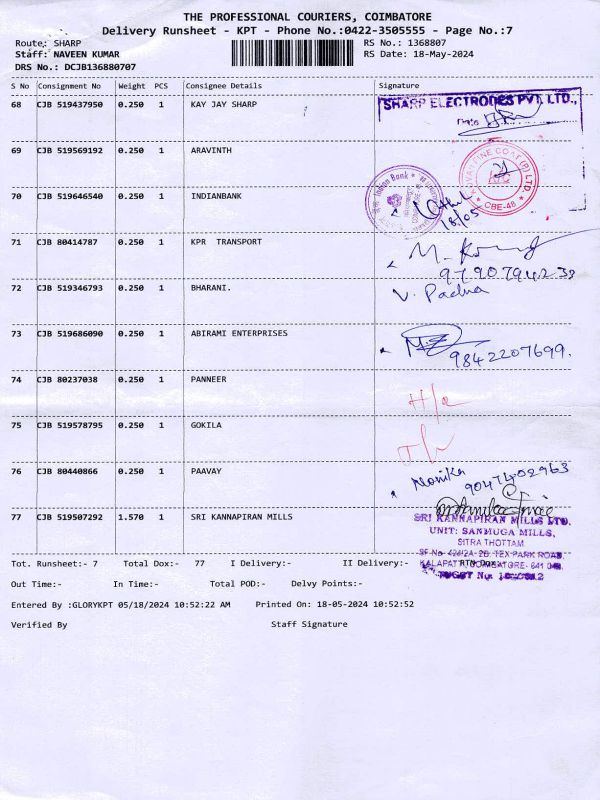 THE PROFESSIONAL COURIERS, COIMBATORE
Delivery Runsheet - KPT - Phone No.:0422-3505555 - Page No.:7
Route: SHARP RS No.: 1368807
Staff: NAVEEN KUMAR RS Date: 18-May-2024
DRS No.: DCJB136880707
S No Consignment No Weight PCS Consignee Details Signature
68 CJB 519437950 0.250 1 KAY JAY SHARP
SHARP ELECTRODES PVT. LTD.,
Date
69 CJB 519569192 0.250 1 ARAVINTH
COAT (P) LTD.
CBE-48
70 CJB 519646540 0.250 1 INDIANBANK
Indian Bank
18/05
71 CJB 80414787 0.250 1 KPR TRANSPORT
9790794233
72 CJB 519346793 0.250 1 BHARANI.
V. Padma
73 CJB 519686090 0.250 1 ABIRAMI ENTERPRISES
9842207699.
74 CJB 80237038 0.250 1 PANNEER
75 CJB 519578795 0.250 1 GOKILA
76 CJB 80440866 0.250 1 PAAVAY
Monika 9047402963
77 CJB 519507292 1.570 1 SRI KANNAPIRAN MILLS
SRI KANNAPIRAN MILLS LTD.
UNIT: SANMUGA MILLS,
SITRA THOTTAM
TEX PARK ROAD,
Tot. Runsheet:- 7 Total Dox:- 77 I Delivery:- II Delivery:-
Out Time:- In Time:- Total POD:- Delvy Points:-
Entered By :GLORYKPT 05/18/2024 10:52:22 AM Printed On: 18-05-2024 10:52:52
Verified By Staff Signature